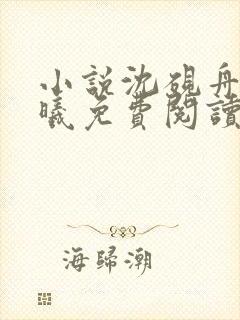 小說沈硯舟
曦免費閱讀
海歸潮